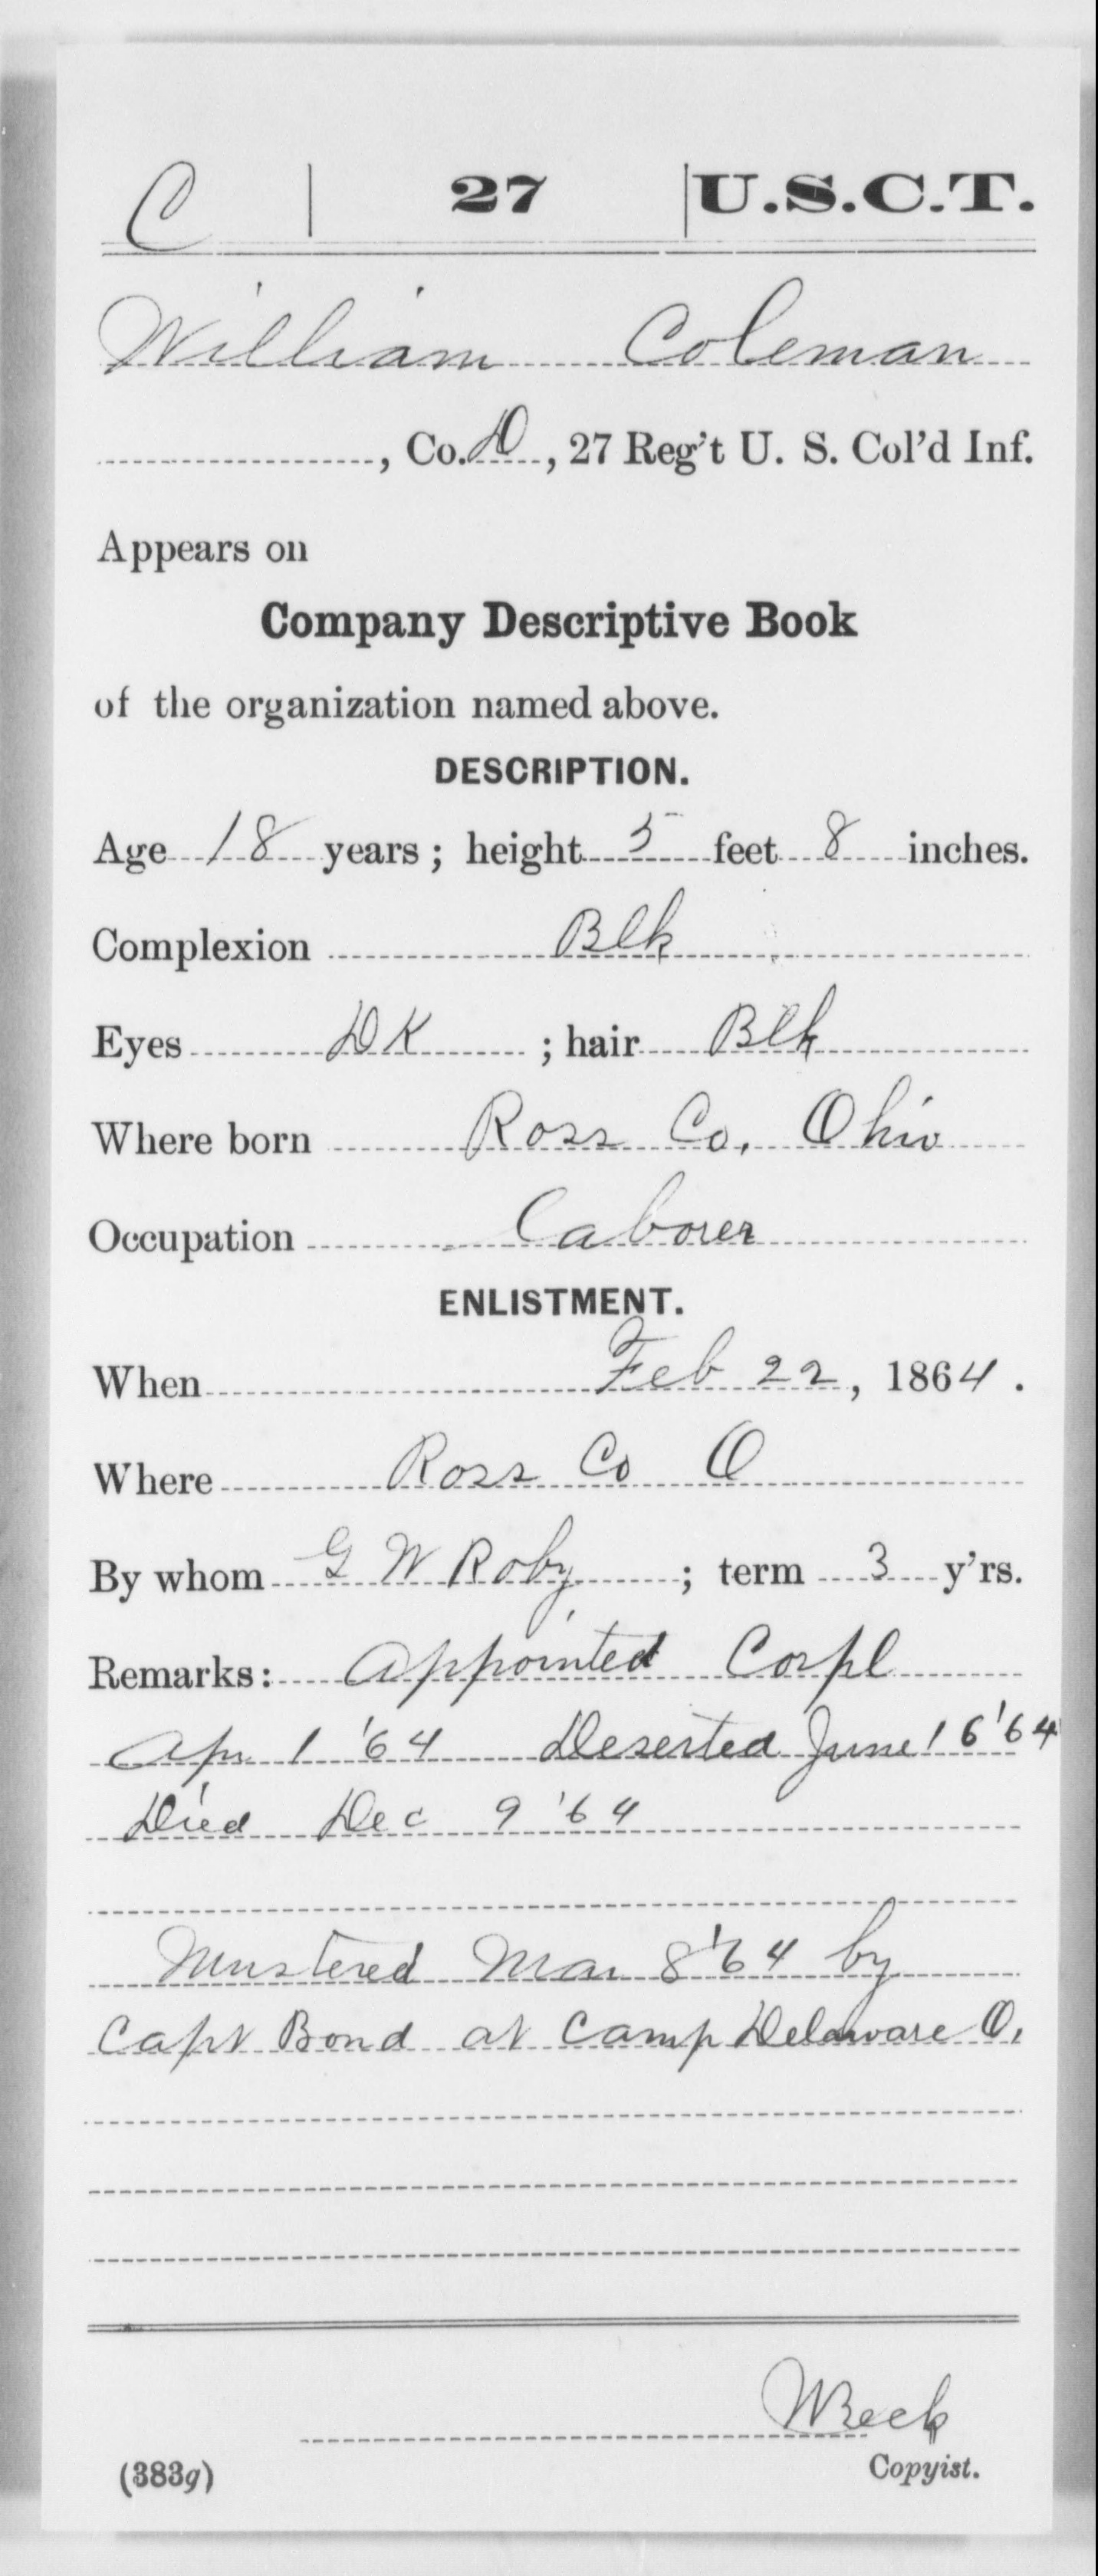 C 27 U.S.C.T.
William Coleman
, Co. D, 27 Reg't U. S. Col'd Inf.
Appears on
Company Descriptive Book
of the organization named above.
DESCRIPTION.
Age 18 years; height 5 feet 8 inches.
Complexion Blk
Eyes DK ; hair Blk
Where born Ross Co, Ohio
Occupation Laborer
ENLISTMENT.
When Feb 22, 1864.
Where Ross Co O
By whom G W Roby ; term 3 y'rs.
Remarks: Appointed Corpl
Apr 1 '64 Deserted June 16 '64
Died Dec 9 '64
Mustered Mar 8 '64 by
Capt Bond at Camp Delaware O.
Copyist.
(383g)